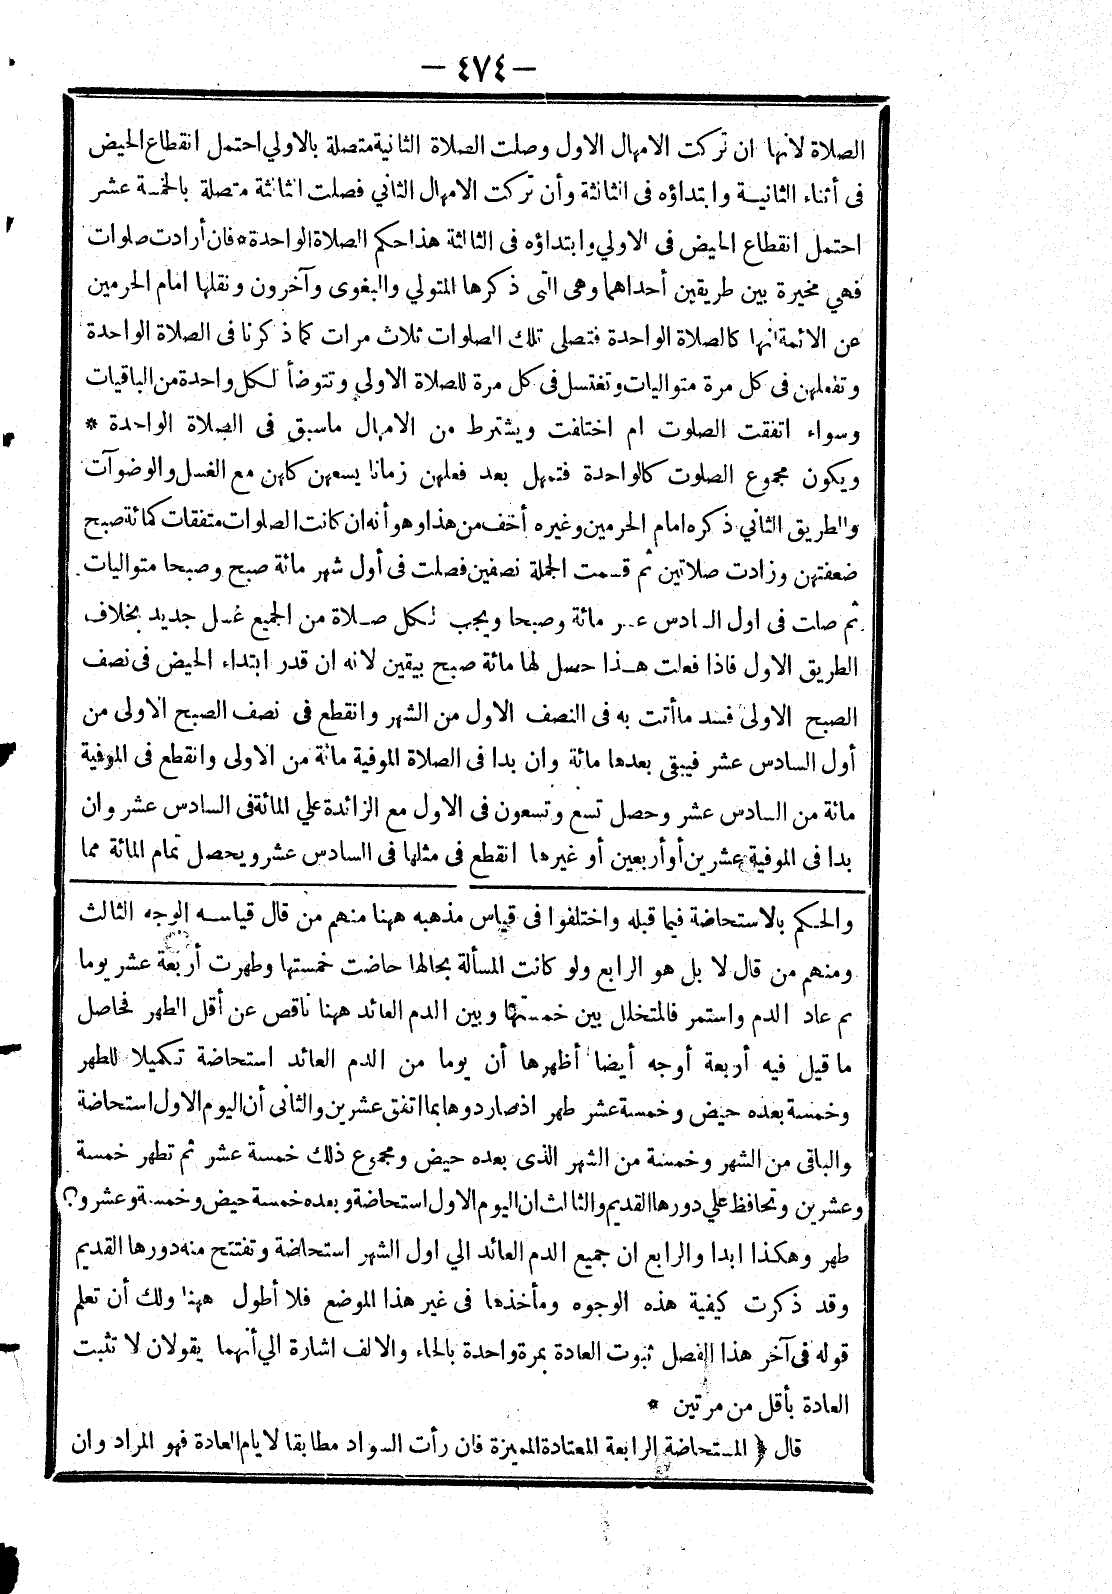 — ٤٧٤ —
الصلاة لانها ان تركت الامهال الاول وصلت الصلاة الثانية متصلة بالاولي احتمل انقطاع الحيض
فى أثناء الثانيـة وابتداؤه فى الثالثة وأن تركت الامهال الثاني فصلت الثالثة متصلة بالخمسة عشر
احتمل انقطاع الحيض فى الاولي وابتداؤه فى الثالثة هذا حكم الصلاة الواحدة * فان أرادت صلوات
فهي مخيرة بين طريقين أحداهما وهى التى ذكرها المتولي والبغوى وآخرون ونقلها امام الحرمين
عن الائمة انها كالصلاة الواحدة فتصلى تلك الصلوات ثلاث مرات كما ذكرنا فى الصلاة الواحدة
وتفعلهن فى كل مرة متواليات وتغتسل فى كل مرة للصلاة الاولي وتتوضأ لكل واحدة من الباقيات
وسواء اتفقت الصلوت ام اختلفت ويشترط من الامهال ماسبق فى الصلاة الواحدة *
ويكون مجموع الصلوت كالواحدة فتمهل بعد فعلهن زمانا يسعهن كلهن مع الغسل والوضوآت
والطريق الثاني ذكره امام الحرمين وغيره أخف من هذا وهو أنه ان كانت الصلوات متفقات كمائة صبح
ضعفتهن وزادت صلاتين ثم قسمت الجملة نصفين فصلت فى أول شهر مائة صبح وصبحا متواليات
ثم صلت فى اول السادس عشر مائة وصبحا ويجب لكل صلاة من الجميع غسل جديد بخلاف
الطريق الاول فاذا فعلت هـذا حصل لها مائة صبح بيقين لانه ان قدر ابتداء الحيض فى نصف
الصبح الاولى فسد ماأتت به فى النصف الاول من الشهر وانقطع فى نصف الصبح الاولى من
أول السادس عشر فيبقى بعدها مائة وان بدا فى الصلاة الموفية مائة من الاولى وانقطع فى الموفية
مائة من السادس عشر وحصل تسع وتسعون فى الاول مع الزائدة علي المائة فى السادس عشر وان
بدا فى الموفية عشرين أو أربعين أو غيرها انقطع فى مثلها فى السادس عشر ويحصل تمام المائة مما
والحكم بالاستحاضة فيما قبله واختلفوا فى قياس مذهبه ههنا منهم من قال قياسـه الوجه الثالث
ومنهم من قال لا بل هو الرابع ولو كانت المسألة بحالها حاضت خمستها وطهرت أربعة عشر يوما
ثم عاد الدم واستمر فالمتخلل بين خمستها وبين الدم العائد ههنا ناقص عن أقل الطهر فحاصل
ما قيل فيه أربعة أوجه أيضا أظهرها أن يوما من الدم العائد استحاضة تكميلا للطهر
وخمسة بعده حيض وخمسة عشر طهر اذ صار دورها بما اتفق عشرين والثانى أن اليوم الاول استحاضة
والباقى من الشهر وخمسة من الشهر الذى بعده حيض ومجموع ذلك خمسة عشر ثم تطهر خمسة
وعشرين وتحافظ علي دورها القديم والثالث ان اليوم الاول استحاضة وبعده خمسة حيض وخمسة وعشرو؟
طهر وهكذا ابدا والرابع ان جميع الدم العائد الي اول الشهر استحاضة وتفتتح منه دورها القديم
وقد ذكرت كيفية هذه الوجوه ومأخذها فى غير هذا الموضع فلا أطول ههنا ولك أن تعلم
قوله فى آخر هذا الفصل ثبوت العادة بمرة واحدة بالحاء والالف اشارة الي أنهما يقولان لا تثبت
العادة بأقل من مرتين *
قال ﴿ المستحاضة الرابعة المعتادة المميزة فان رأت السواد مطابقا لايام العادة فهو المراد وان